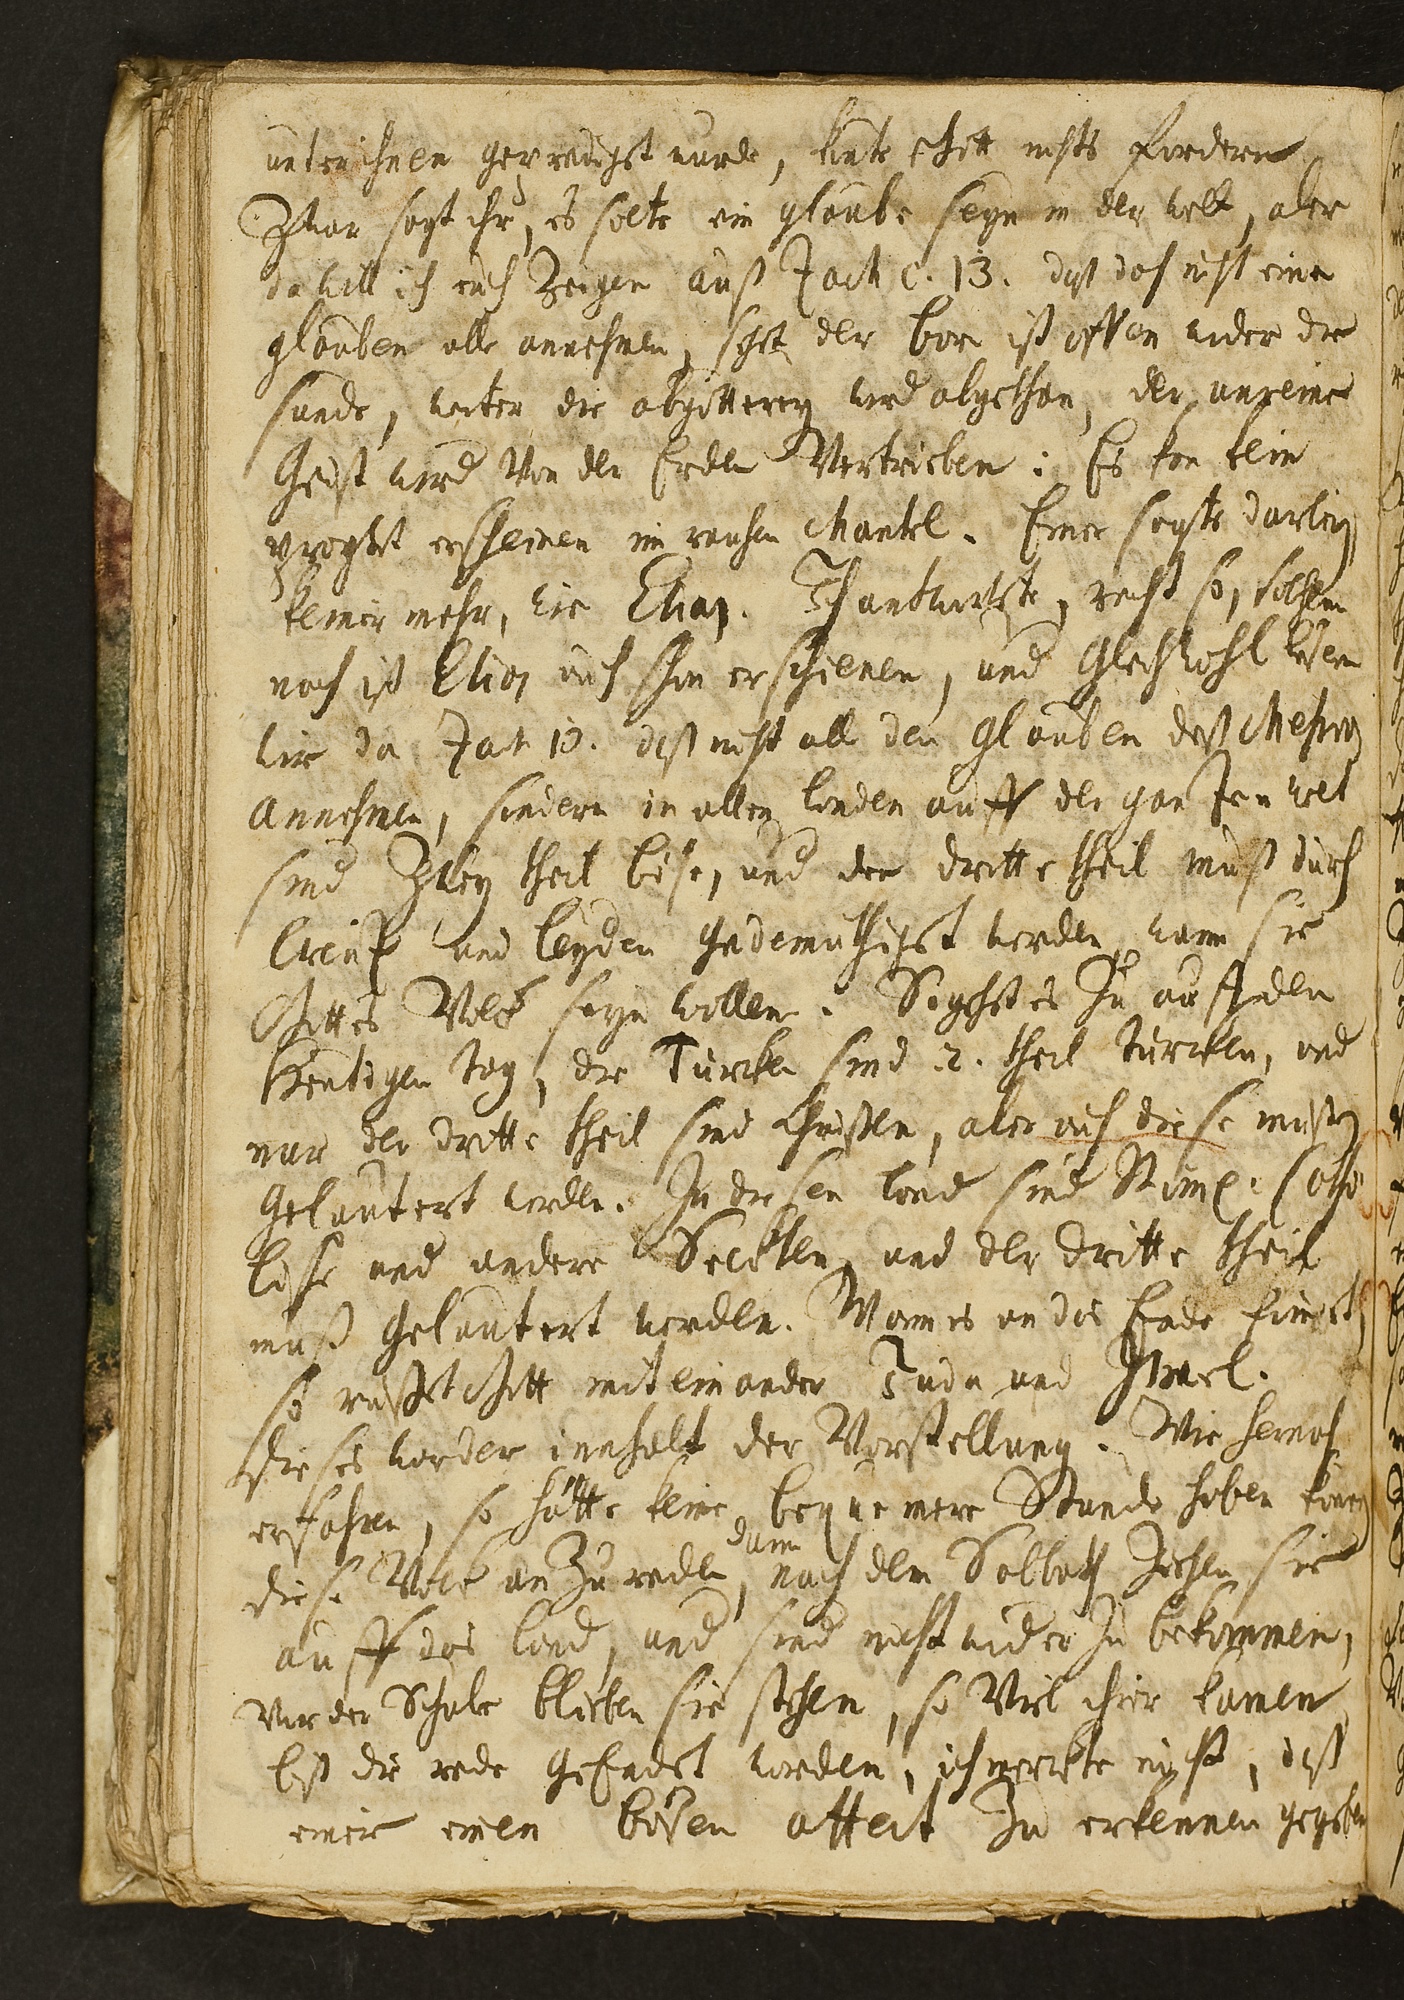 unter ihnen geprediget wurde, kunte Gott nichts fordern
Zwar sagt ihr, es solte ein glaube seyn in der welt, aber
da will ich euch Zeigen auß Zach c. 13. daß doch nicht einen
glauben alle annehmen, sehet der born ist offen wider die
sunde, weiter die abgötterey wird abgethan, der unreine
Geist wird Von der Erden Vertrieben: Es kan kein
prophet erscheinen im rauhen Mantel. Einer sagte darbey
keiner mehr, wie Elias. Ich antwortete, recht so, solchem
nach ist Elias auch schon erschienen, und Gleichwohl lesen
wir da Zach 13. daß nicht alle den Glauben deß Messiæ
Annehmen, sondern in allen landen auff der gantzen welt
sind Zwey theil böse, und der dritte theil muß durch
Creutz und leyden gedemüthiget werden, wann sie
Gottes Volck seyn wollen. Sehet es Zu auff den
Heutigen tag, die Türcken sind 2. theil Türcken, und
nur der dritte theil sind Christen, aber auch diese müssen
Geläutert werden. In diesen land sind Röm. Catho
lische und andere Seckten, und der dritte theil
muß geläutert werden. Wann es an das Ende kimmt
so richtet Gott mit einander Juda und Israel.
Dieses war der innhalt der Vorstellung. Wie hernach
erfahren, so hätte keine bequemere Stunde haben können
diese Volck an Zu reden, dann nach dem Sabbath Ziehen sie
auff das land, und sind nicht wider Zu bekommen,
Vor der Schule blieben sie stehen, so Viel ihrer kamen
biß die rede geendet worden, ich merckte nicht, daß
einer einen bösen affect Zu erkennen gegeben